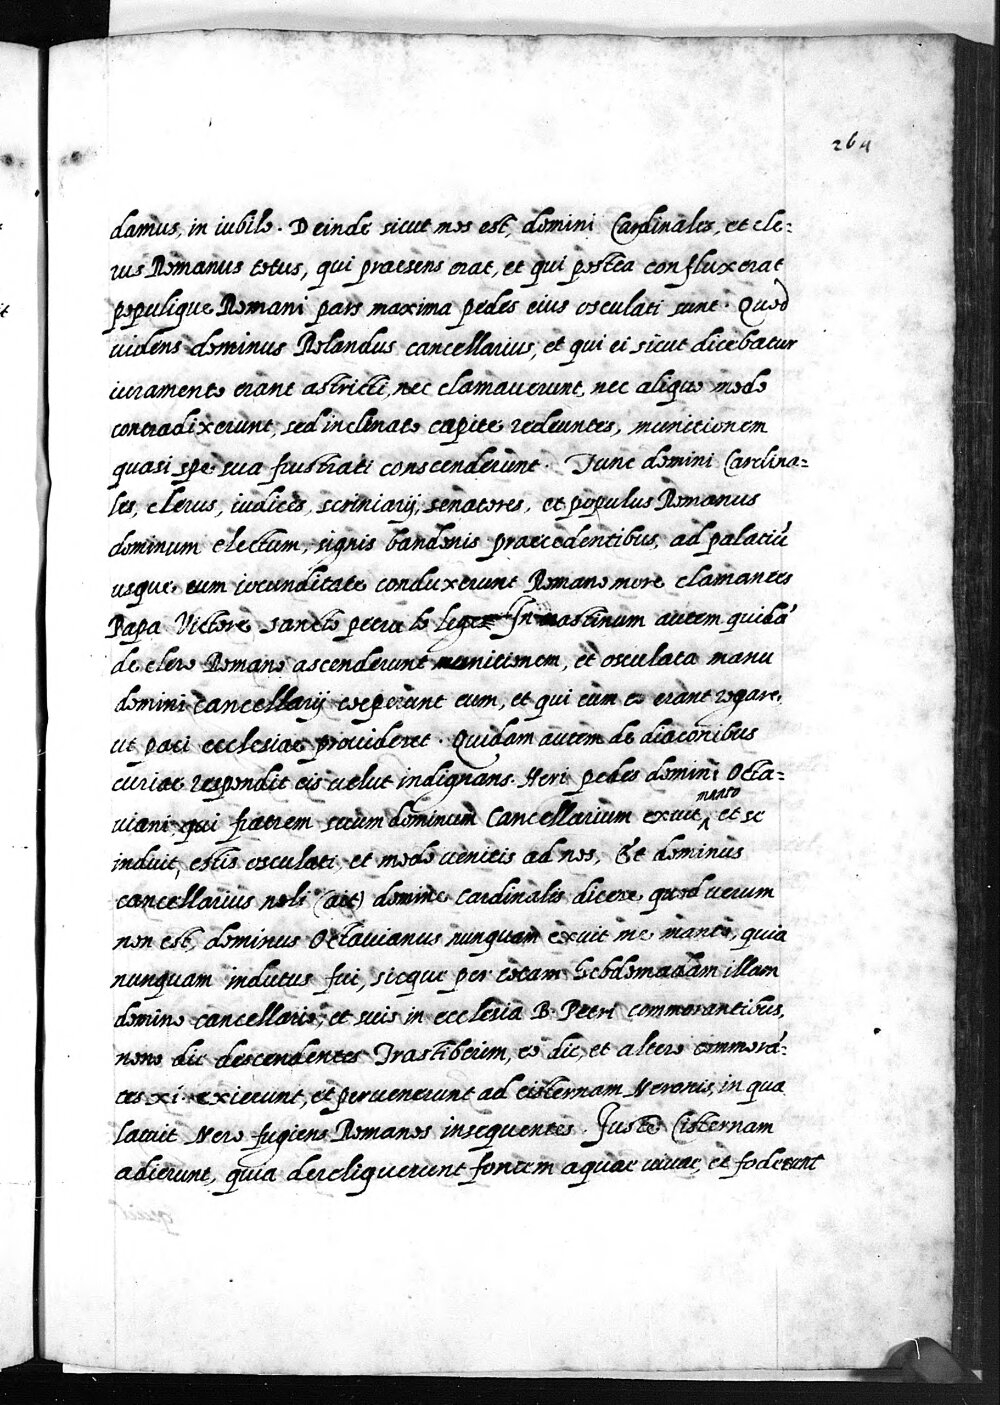 264
damus, in iubilo. Deinde sicut mos est, domini Cardinales, et cle:
rus Romanus totus, qui praesens erat, et qui postea confluxerat
populique Romani pars maxima pedes eius osculati sunt. Quod
videns dominus Rolandus cancellarius, et qui ei sicut dicebatur
iuramento erant astricti, nec clamaverunt, nec aliquo modo
contradixerunt, sed inclinato capite redeuntes, munitionem
quasi spe sua frustrati conscenderunt. Tunc domini Cardina=
les, clerus, iudices, scriniarij, senatores, et populus Romanus
dominum electum, signis bandonis praecedentibus, ad palatiū
usque cum iocunditate conduxerunt Romano more clamantes
Papa Victore sancto petro lo In mastinum autem quidā
de clero Romano ascenderunt munitionem, et osculata manu
domini cancellarij coeperunt eum, et qui cum eo erant rogare,
ut paci ecclesiae provideret. Quidam autem de diaconibus
curiae respondit eis velut indignans. Heri pedes domini Octa=
viani, qui fratrem suum dominum Cancellarium exuit manto et se
induit, estis osculati, et modo venitis ad nos, Et dominus
cancellarius noli (ait) domine Cardinalis dicere, quod verum
non est, dominus Octavianus nunquam exuit me manto, quia
nunquam indutus fui, sicque per totam hebdomadam illam
domino cancellario, et suis in ecclesia B. Petri commorantibus,
nono die descendentes Trastiberim, eo die, et altero commorā:
tes xi. exierunt, et pervenerunt ad cisternam Neronis, in qua
latuit Nero fugiens Romanos insequentes. Juste Cisternam
adierunt, quia dereliquerunt fontem aquae vivae, et foderunt